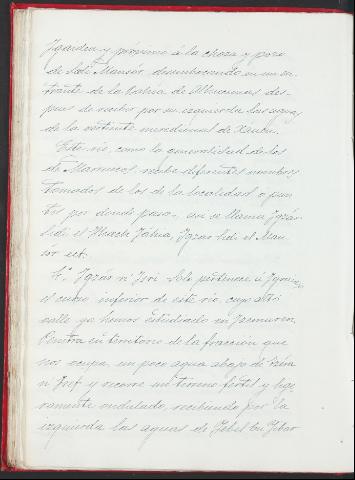 y proximo á la choza y pozo
de Sidi Mansór desembocando en un en-
trante de la bahia de Alhucemas des-
pues de recibir por su izquierda las aguas
de la vertiente meridional de
Este rio, como la generalidad de los
de Marruecos, recibe diferentes nombres
tomados de los de la localidad o pun-
tos por donde pasa, asi se llama Igzár
Sidi el Igzar Sidi el Man-
sór ect.
4º Igzár n' Isri Solo pertenece á
el curso inferior de este rio, cuyo alto
valle ya hemos estudiado en
Penetra en territorio de la fracción que
nos ocupa, un poco agua abajo de
n y recorre un terreno fértil y lige-
ramente ondulado, recibiendo por la
izquierda las aguas de Jebel bu Jibar